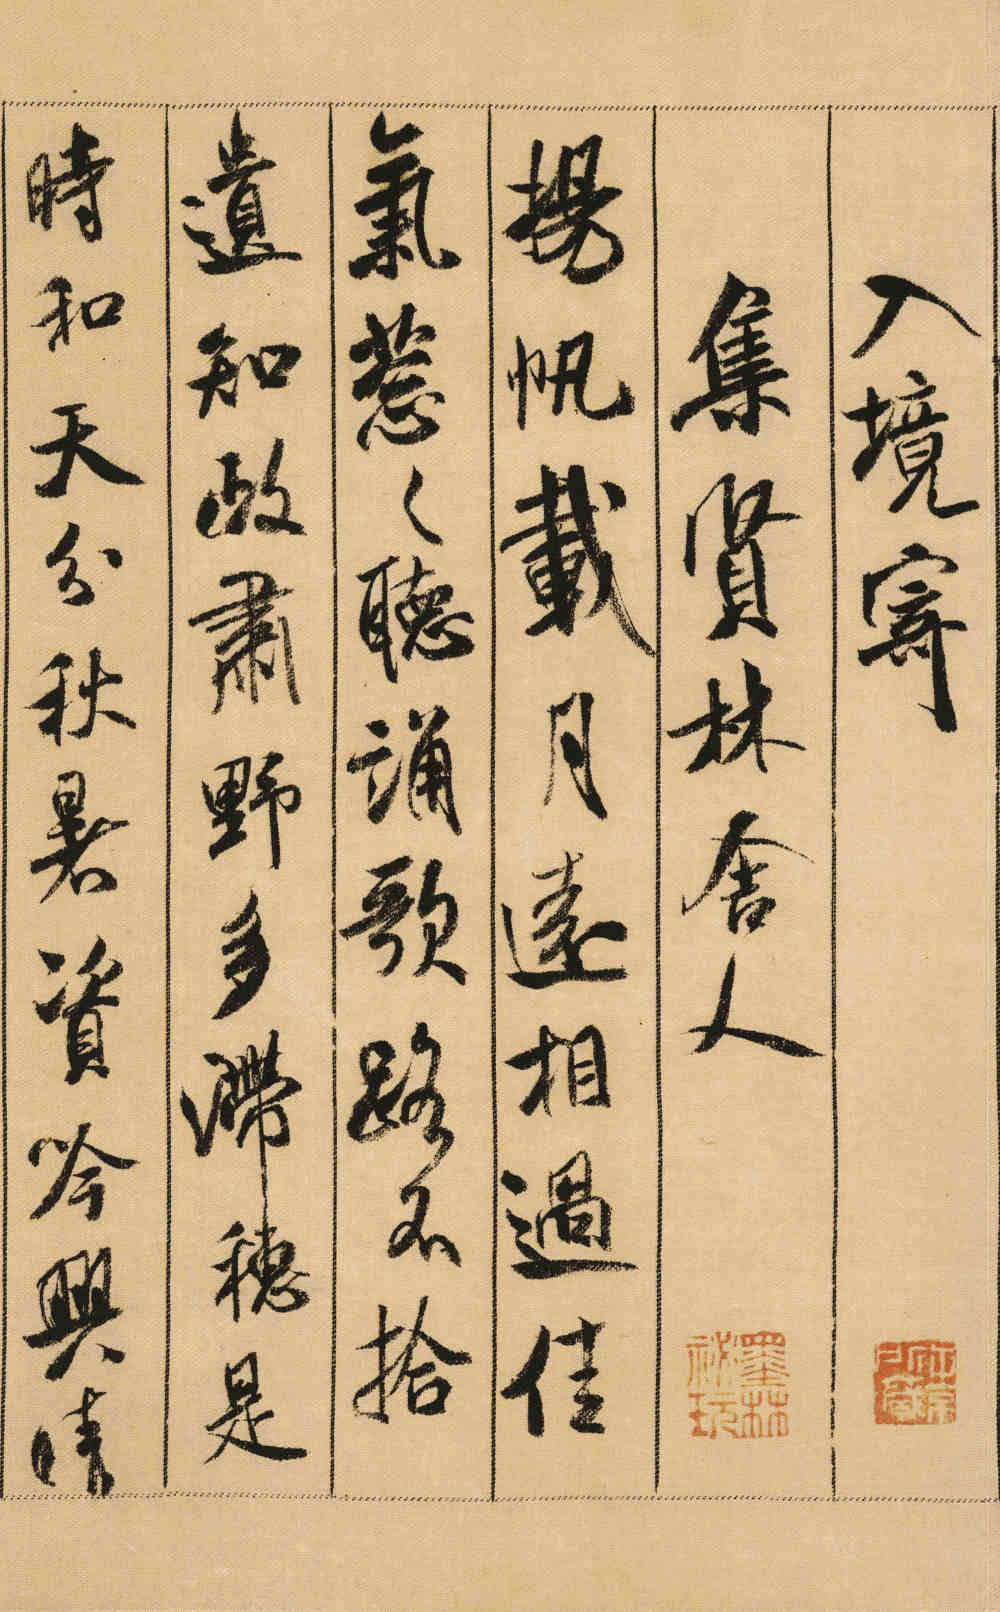 入境寄
集賢林舍人
揚帆載月遠相過佳
氣葱〻聽誦歌路不拾
遺知政肅野多滯穗是
時和天分秋暑資吟興晴
墨林祕玩